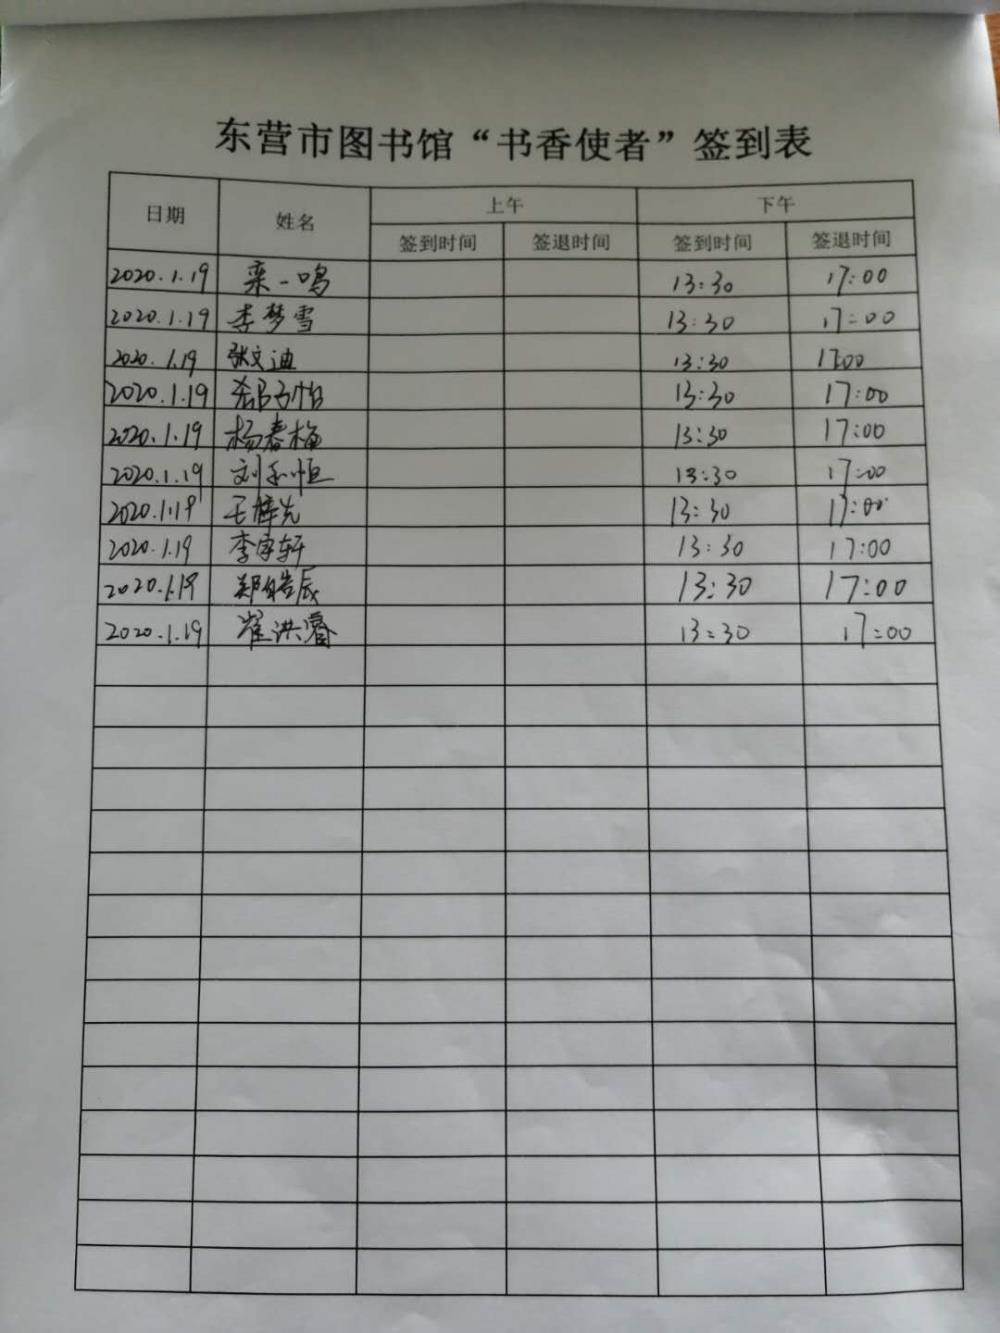 东营市图书馆“书香使者”签到表
日期 姓名 上午 下午
签到时间 签退时间 签到时间 签退时间
2020.1.19 栾一鸣 13:30 17:00
2020.1.19 李梦雪 13:30 17:00
2020.1.19 张文迪 13:30 17:00
2020.1.19 13:30 17:00
2020.1.19 杨春梅 13:30 17:00
2020.1.19 刘和恒 13:30 17:00
2020.1.19 王梓先 13:30 17:00
2020.1.19 李宇轩 13:30 17:00
2020.1.19 郑皓辰 13:30 17:00
2020.1.19 崔洪睿 13:30 17:00